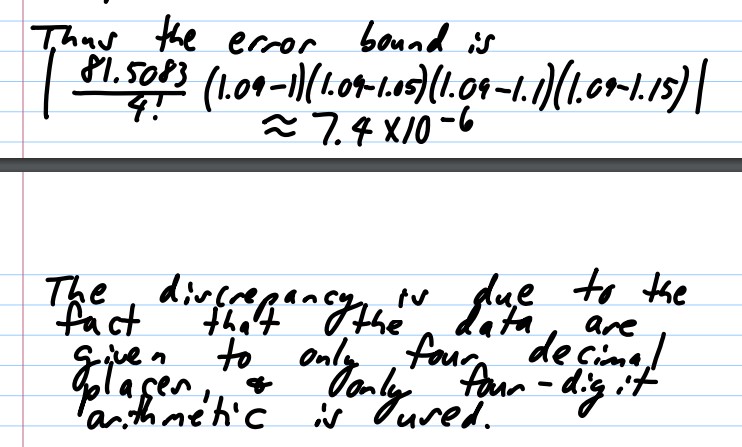 Thus the error bound is
| 81.5083 / 4! (1.09-1)(1.09-1.05)(1.09-1.1)(1.09-1.15) |
≈ 7.4 × 10^-6
The discrepancy is due to the
fact that the data are
given to only four decimal
places, & only four-digit
arithmetic is used.